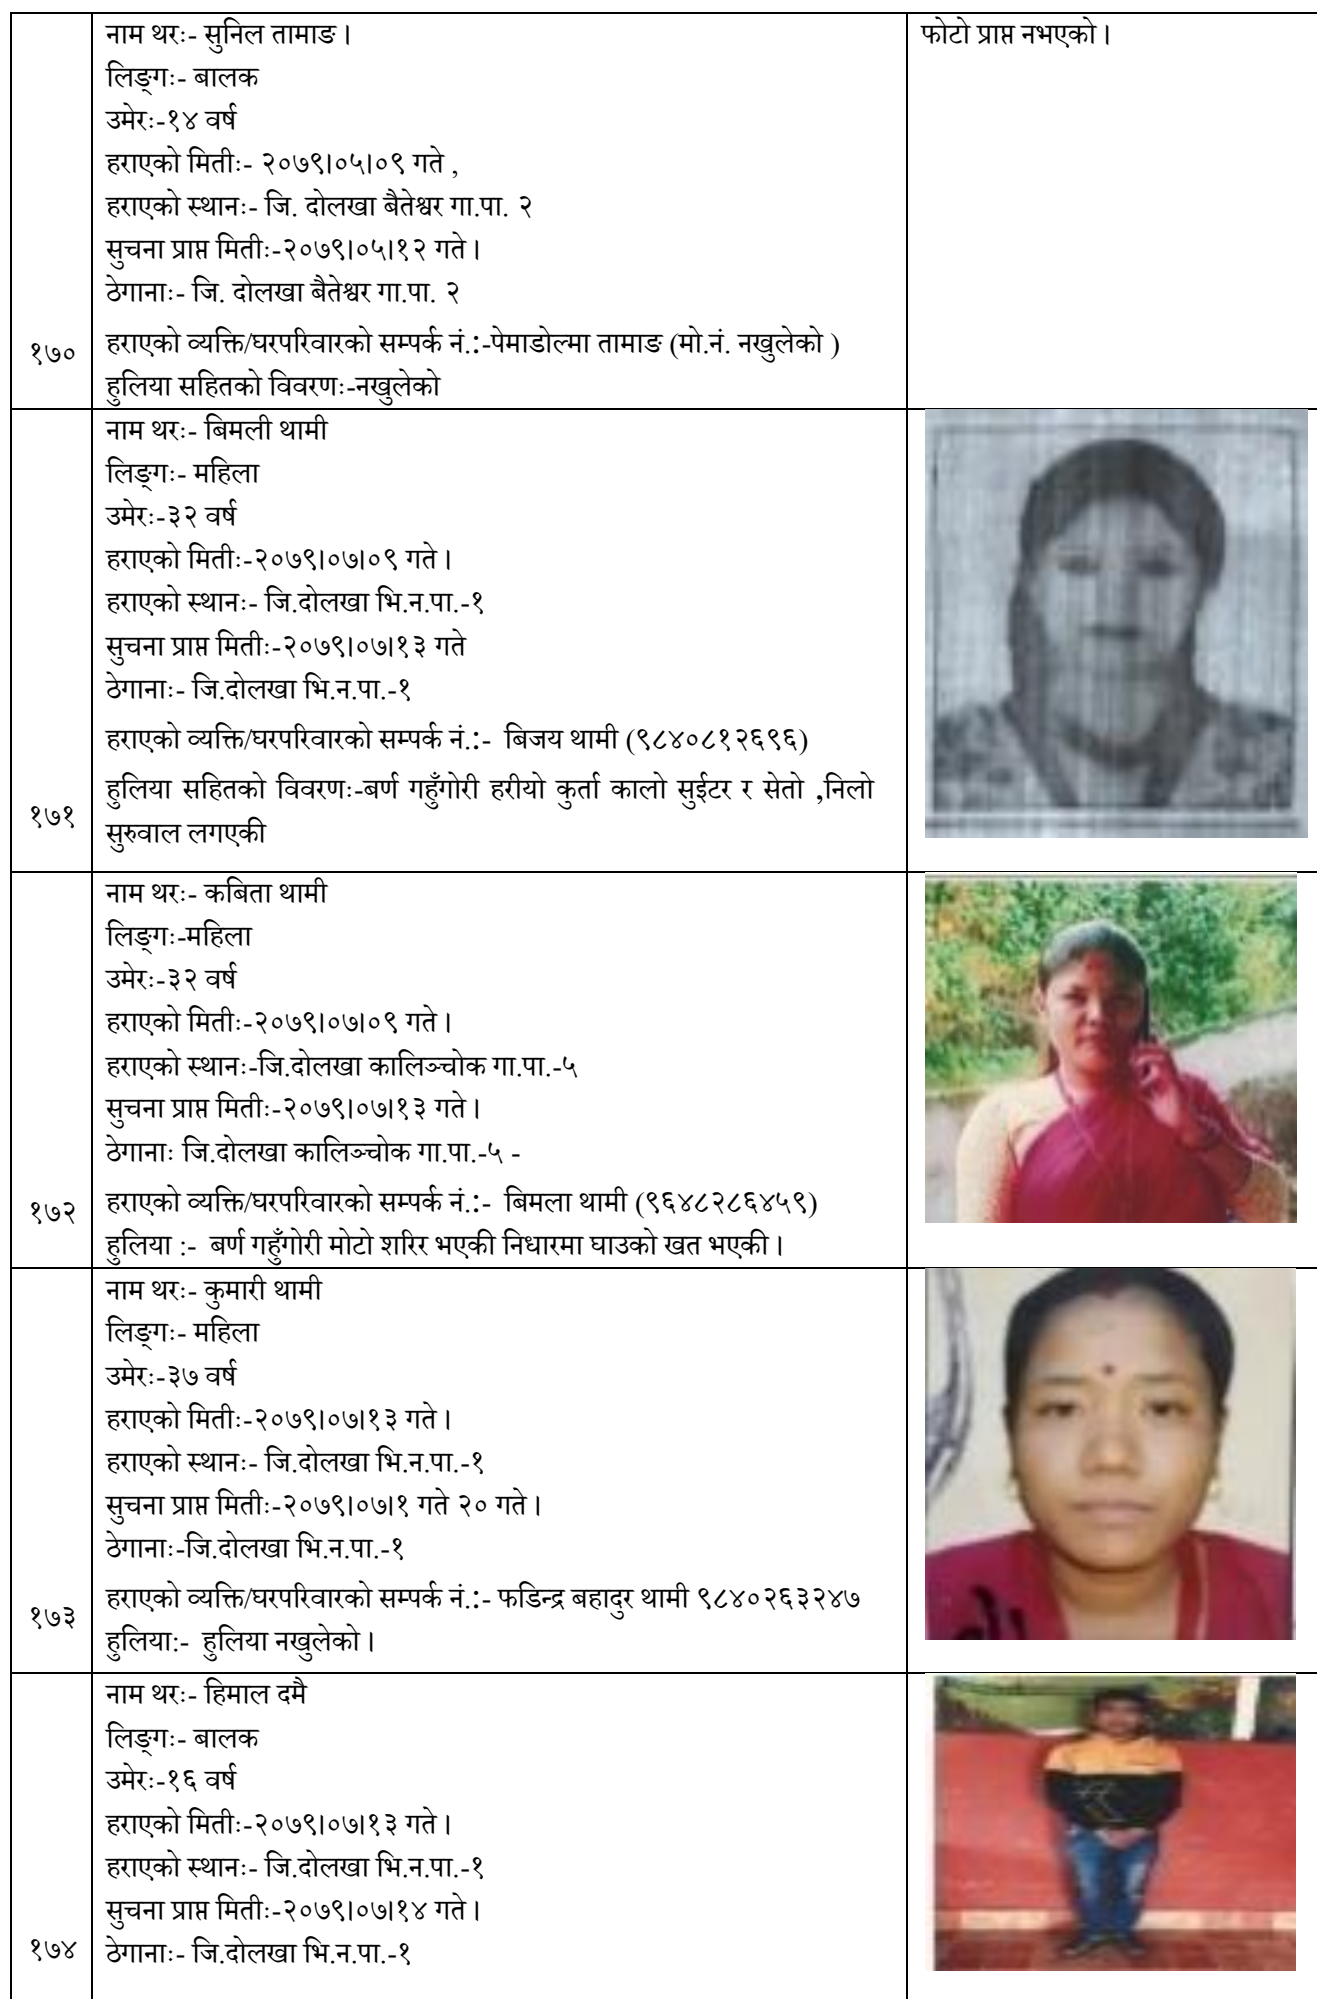 नाम थरः- सुनिल तामाङ।
फोटो प्राप्त नभएको।
लिङ्गः- बालक
उमेरः-१४ वर्ष
हराएको मितीः- २०७९।०५।०९ गते ,
हराएको स्थानः- जि. दोलखा बैतेश्वर गा.पा. २
सुचना प्राप्त मितीः-२०७९।०५।१२ गते।
ठेगानाः- जि. दोलखा बैतेश्वर गा.पा. २
१७० हराएको व्यक्ति/घरपरिवारको सम्पर्क नं.:-पेमाडोल्मा तामाङ (मो.नं. नखुलेको )
हुलिया सहितको विवरणः-नखुलेको
नाम थरः- बिमली थामी
लिङ्गः- महिला
उमेरः-३२ वर्ष
हराएको मितीः-२०७९।०७।०९ गते।
हराएको स्थानः- जि.दोलखा भि.न.पा.-१
सुचना प्राप्त मितीः-२०७९।०७।१३ गते
ठेगानाः- जि.दोलखा भि.न.पा.-१
हराएको व्यक्ति/घरपरिवारको सम्पर्क नं.:- बिजय थामी (९८४०८१२६९६)
१७१ हुलिया सहितको विवरणः-बर्ण गहुँगोरी हरीयो कुर्ता कालो सुईटर र सेतो ,निलो
सुरुवाल लगएकी
नाम थरः- कबिता थामी
लिङ्गः-महिला
उमेरः-३२ वर्ष
हराएको मितीः-२०७९।०७।०९ गते।
हराएको स्थानः-जि.दोलखा कालिञ्चोक गा.पा.-५
सुचना प्राप्त मितीः-२०७९।०७।१३ गते।
ठेगानाः जि.दोलखा कालिञ्चोक गा.पा.-५ -
१७२ हराएको व्यक्ति/घरपरिवारको सम्पर्क नं.:- बिमला थामी (९६४८२८६४५९)
हुलिया :- बर्ण गहुँगोरी मोटो शरिर भएकी निधारमा घाउको खत भएकी।
नाम थरः- कुमारी थामी
लिङ्गः- महिला
उमेरः-३७ वर्ष
हराएको मितीः-२०७९।०७।१३ गते।
हराएको स्थानः- जि.दोलखा भि.न.पा.-१
सुचना प्राप्त मितीः-२०७९।०७।१ गते २० गते।
ठेगानाः-जि.दोलखा भि.न.पा.-१
१७३ हराएको व्यक्ति/घरपरिवारको सम्पर्क नं.:- फडिन्द्र बहादुर थामी ९८४०२६३२४७
हुलिया:- हुलिया नखुलेको।
नाम थरः- हिमाल दमै
लिङ्गः- बालक
उमेरः-१६ वर्ष
हराएको मितीः-२०७९।०७।१३ गते।
हराएको स्थानः- जि.दोलखा भि.न.पा.-१
सुचना प्राप्त मितीः-२०७९।०७।१४ गते।
१७४ ठेगानाः- जि.दोलखा भि.न.पा.-१